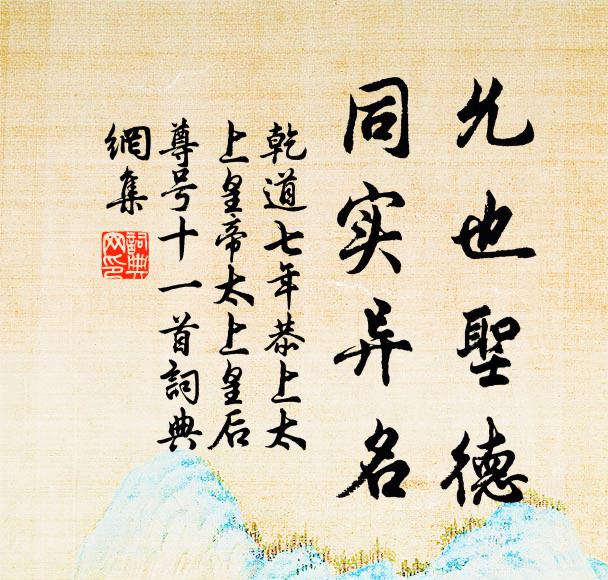 允也聖德
同实异名
乾道七年恭上太
上皇帝太上皇后
尊号十一首詞典
網集
詞典
网印